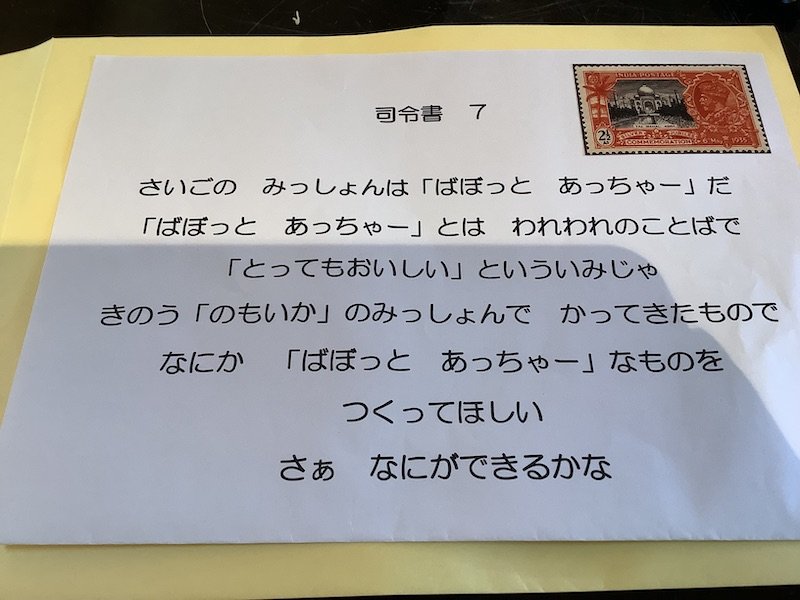 司令書　７
INDIA POSTAGE
2½
COMMEMORATION
さいごの　みっしょんは「ばぼっと　あっちゃー」だ
「ばぼっと　あっちゃー」とは　われわれのことばで
「とってもおいしい」といういみじゃ
きのう「のもいか」のみっしょんで　かってきたもので
なにか　「ばぼっと　あっちゃー」なものを
つくってほしい
さぁ　なにができるかな